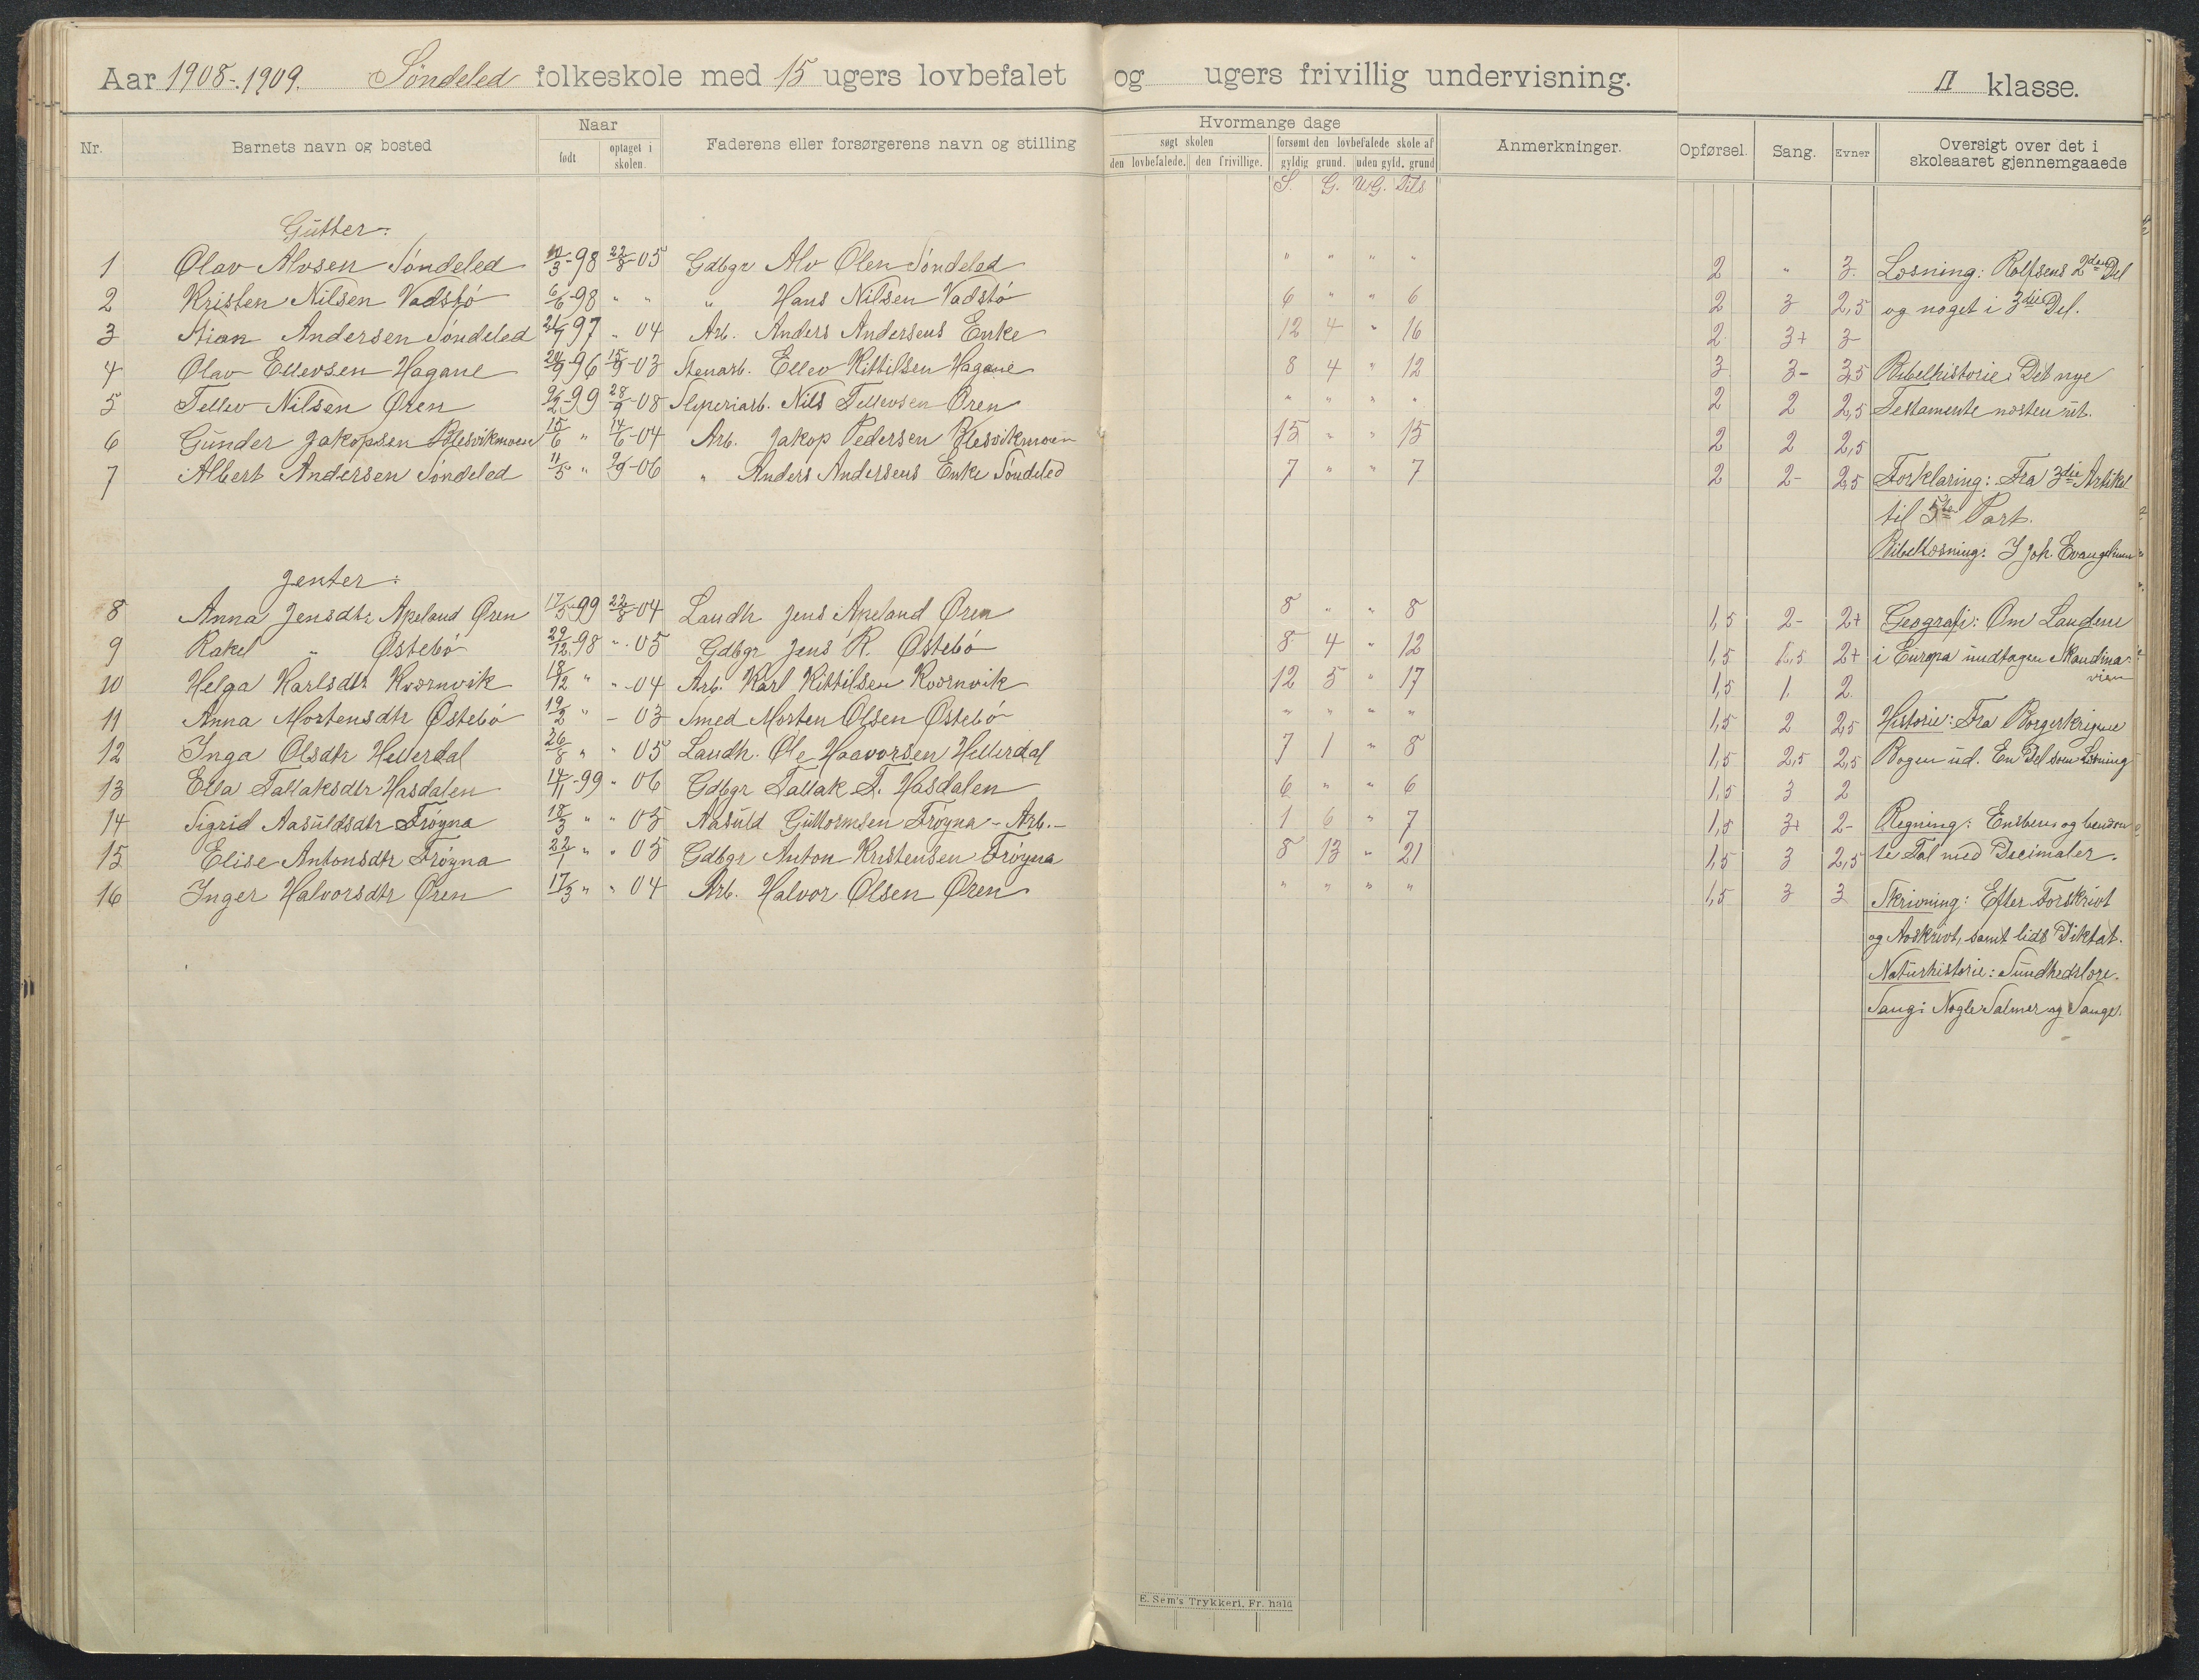 Aar 1908-1909. Søndeled folkeskole med 15 ugers lovbefalet og ugers frivillig undervisning. II klasse.
Nr. Barnets navn og bosted Naar født optaget i skolen. Faderens eller forsørgerens navn og stilling Hvormange dage søgt skolen den lovbefalede. den frivillige. forsømt den lovbefalede skole af gyldig grund. uden gyld. grund Anmerkninger. Opførsel. Sang. Evner Oversigt over det i skoleaaret gjennemgaaede
S. G. UG. Dils
Gutter:
1 Olav Alvsen Søndeled 10/3-98 22/8-05 Gdbgr Alv Olsen Søndeled " " " " 2 " 3 Læsning: Rolfsens 2den Del
2 Kristen Nilsen Vadstø 6/6-98 " " " Hans Nilsen Vadstø 6 " " 6 2 3 2,5 og noget i 3die Del.
3 Andersen Søndeled 97 " 04 Arb. Anders Andersens Enke 12 4 " 16 2 3+ 3
4 Olav Ellevsen Hagane 96 15/9-03 Stenarb. Ellev Kittilsen Hagane 8 4 " 12 3 3- 3,5 Bibelhistorie: Det nye
5 Tellev Nilsen Øren 9/2-99 28/9-08 Sliperiarb. Nils Tellevsen Øren " " " " 2 2 2,5 Testamente næsten ut.
6 Gunder Jakopsen Blesvikmoen 15/6 " 14/6-04 Arb. Jakop Pedersen Blesvikmoen 15 " " 15 2 2 2,5
7 Albert Andersen Søndeled 11/5 " 9/9-06 " Anders Andersens Enke Søndeled 7 " " 7 2 2- 2,5 Forklaring: Fra 3die Artikel
til 5te Part.
Bibellæsning: I Joh. Evangelium
Jenter:
8 Anna Jensdtr Apeland Øren 17/5-99 22/8-04 Landh Jens Apeland Øren 8 " " 8 1,5 2- 2+ Geografi: Om Landene
9 Rakel " Østebø 29/12-98 " 05 Gdbgr Jens R. Østebø 8 4 " 12 1,5 1,5 2+ i Europa undtagen Skandina-
vien
10 Helga Karlsdtr Kværnvik 18/12 " " -04 Arb. Karl Kittilsen Kværnvik 12 5 " 17 1,5 1 2
11 Anna Mortensdtr Østebø 19/2 " - 03 Smed Morten Olsen Østebø " " " " 1,5 2 2,5 Historie: Fra Borgerkrigene
12 Inga Olsdtr Hellerdal 26/8 " " 05 Landh. Ole Haavorsen Hellerdal 7 1 " 8 1,5 2,5 2,5 Bogen ud. En Del som Læsning
13 Ella Tallaksdtr Hasdalen 14/1-99 " 06 Gdbgr Tallak T. Hasdalen 6 " " 6 1,5 3 2
14 Sigrid Aasuldsdtr Frøyna 18/3 " " 05 Aasuld Guttormsen Frøyna - Arb.- 1 6 " 7 1,5 3+ 2- Regning: Ensbenev og benævn
15 Elise Antonsdtr Frøyna 22/1 " " 05 Gdbgr Anton Kristensen Frøyna 8 13 " 21 1,5 3 2,5 te Tal med Decimaler.
16 Inger Halvorsdtr Øren 17/3 " " 04 Arb. Halvor Olsen Øren " " " " 1,5 3 3 Skrivning: Efter Forskrivt
og Avskrivt, samt lidt Diktat.
Naturhistorie: Sundhedslære.
Sang: Nogle Salmer og Sange.
E. Sem's Trykkeri, Fr. hald